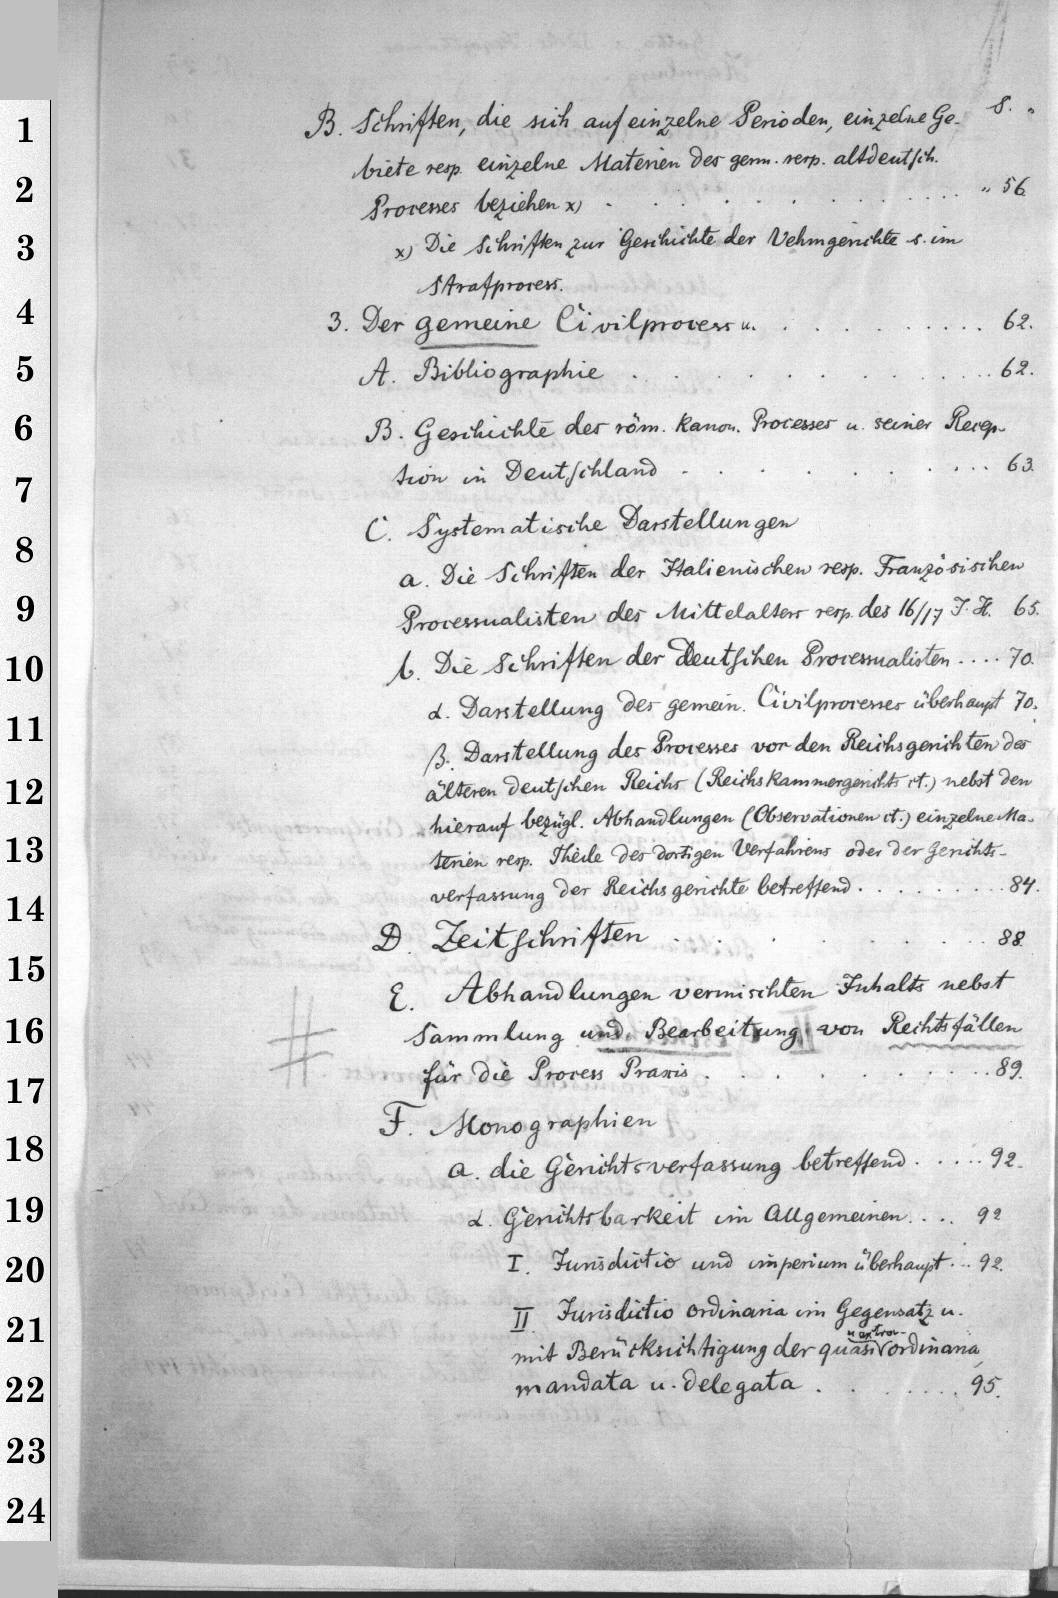 1
2
3
4
5
6
7
8
9
10
11
12
13
14
15
16
17
18
19
20
21
22
23
24
B. Schriften, die sich auf einzelne Perioden, einzelne Ge- S. "
biete resp. einzelne Materien des germ. resp. altdeutsch.
Processes beziehen x) . . . . . . . . . . " 56
x) Die Schriften zur Geschichte der Vehmgerichte s. im
Strafprocess.
3. Der gemeine Civilprocess u. . . . . . . . . 62.
A. Bibliographie . . . . . . . . . . 62.
B. Geschichte des röm. kanon. Processes u. seiner Recep-
tion in Deutschland . . . . . . . . . . 63.
C. Systematische Darstellungen
a. Die Schriften der Italienischen resp. Französischen
Processualisten des Mittelalters resp. des 16/17 J. H. 65.
b. Die Schriften der Deutschen Processualisten .... 70.
α. Darstellung des gemein. Civilprocesses überhaupt 70.
β. Darstellung des Processes vor den Reichsgerichten des
älteren deutschen Reichs (Reichskammergerichts ct.) nebst den
hierauf bezügl. Abhandlungen (Observationen ct.) einzelne Ma-
terien resp. Theile des dortigen Verfahrens oder der Gerichts-
verfassung der Reichsgerichte betreffend . . . . . . . . . 84.
D. Zeitschriften . . . . . . . . . 88.
E. Abhandlungen vermischten Inhalts nebst
Sammlung und Bearbeitung von Rechtsfällen
für die Process Praxis . . . . . . . . . 89.
F. Monographien
a. die Gerichtsverfassung betreffend . . . . . 92.
α. Gerichtsbarkeit im Allgemeinen . . . . 92
I. Jurisdictio und imperium überhaupt . . . 92.
II. Jurisdictio ordinaria im Gegensatz u.
u extraor-
mit Berücksichtigung der quasi ordinaria,
mandata u. delegata . . . . . . 95.